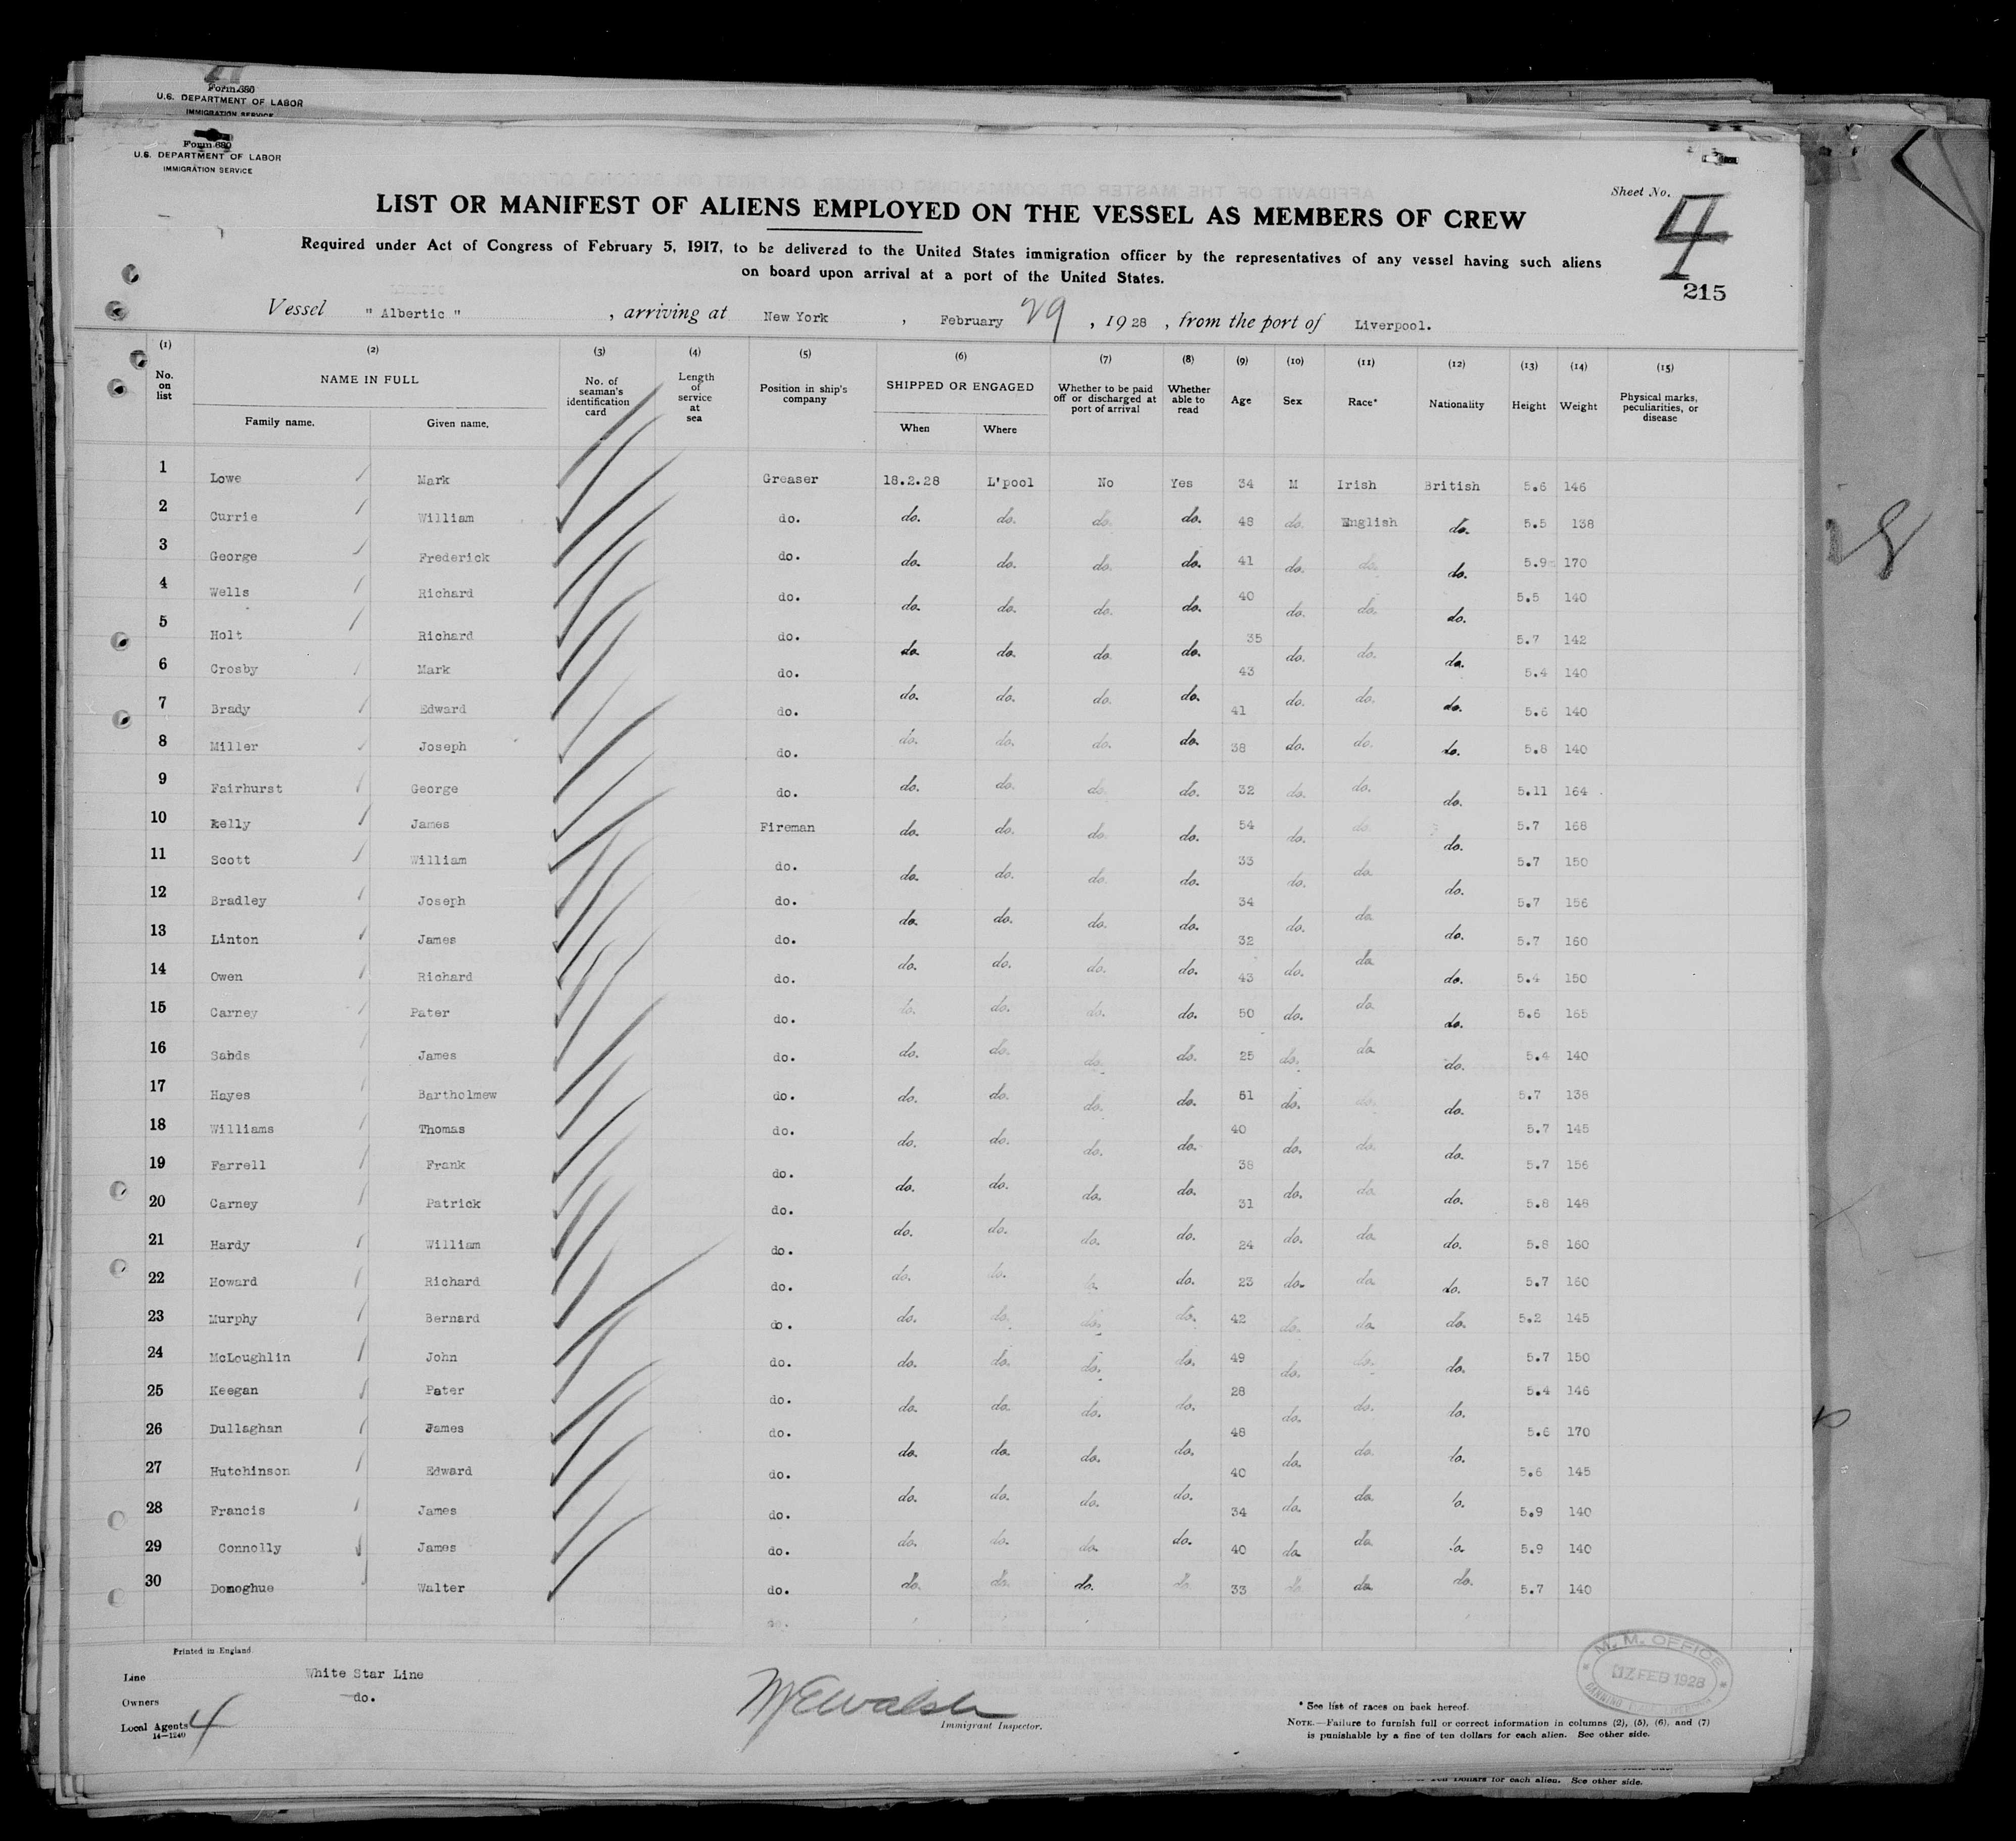 Form 680
U.S. DEPARTMENT OF LABOR
IMMIGRATION SERVICE
Form 680
U.S. DEPARTMENT OF LABOR
IMMIGRATION SERVICE
Sheet No. 4
LIST OR MANIFEST OF ALIENS EMPLOYED ON THE VESSEL AS MEMBERS OF CREW
Required under Act of Congress of February 5, 1917, to be delivered to the United States immigration officer by the representatives of any vessel having such aliens
on board upon arrival at a port of the United States.
215
Vessel " Albertic " , arriving at New York , February 29 , 1928 , from the port of Liverpool.
(1) (2) (3) (4) (5) (6) (7) (8) (9) (10) (11) (12) (13) (14) (15)
No. on list NAME IN FULL Family name. Given name. No. of seaman's identification card Length of service at sea Position in ship's company SHIPPED OR ENGAGED When Where Whether to be paid off or discharged at port of arrival Whether able to read Age Sex Race* Nationality Height Weight Physical marks, peculiarities, or disease
1 Lowe Mark Greaser 18.2.28 L'pool No Yes 34 M Irish British 5.6 146
2 Currie William do. do. do. do. do. 48 do. English do. 5.5 138
3 George Frederick do. do. do. do. do. 41 do. do. do. 5.9 170
4 Wells Richard do. do. do. do. do. 40 do. do. do. 5.5 140
5 Holt Richard do. do. do. do. do. 35 do. do. do. 5.7 142
6 Crosby Mark do. do. do. do. do. 43 do. do. do. 5.4 140
7 Brady Edward do. do. do. do. do. 41 do. do. do. 5.6 140
8 Miller Joseph do. do. do. do. do. 38 do. do. do. 5.8 140
9 Fairhurst George do. do. do. do. do. 32 do. do. do. 5.11 164
10 Kelly James Fireman do. do. do. do. 54 do. do. do. 5.7 168
11 Scott William do. do. do. do. do. 33 do. do. do. 5.7 150
12 Bradley Joseph do. do. do. do. do. 34 do. do. do. 5.7 156
13 Linton James do. do. do. do. do. 32 do. do. do. 5.7 160
14 Owen Richard do. do. do. do. do. 43 do. do. do. 5.4 150
15 Carney Pater do. do. do. do. do. 50 do. do. do. 5.6 165
16 Sands James do. do. do. do. do. 25 do. do. do. 5.4 140
17 Hayes Bartholmew do. do. do. do. do. 51 do. do. do. 5.7 138
18 Williams Thomas do. do. do. do. do. 40 do. do. do. 5.7 145
19 Farrell Frank do. do. do. do. do. 38 do. do. do. 5.7 156
20 Carney Patrick do. do. do. do. do. 31 do. do. do. 5.8 148
21 Hardy William do. do. do. do. do. 24 do. do. do. 5.8 160
22 Howard Richard do. do. do. do. do. 23 do. do. do. 5.7 160
23 Murphy Bernard do. do. do. do. do. 42 do. do. do. 5.2 145
24 McLoughlin John do. do. do. do. do. 49 do. do. do. 5.7 150
25 Keegan Pater do. do. do. do. do. 28 do. do. do. 5.4 146
26 Dullaghan James do. do. do. do. do. 48 do. do. do. 5.6 170
27 Hutchinson Edward do. do. do. do. do. 40 do. do. do. 5.6 145
28 Francis James do. do. do. do. do. 34 do. do. do. 5.9 140
29 Connolly James do. do. do. do. do. 40 do. do. do. 5.9 140
30 Donoghue Walter do. do. do. do. do. 33 do. do. do. 5.7 140
do.
Printed in England.
Line White Star Line
Owners do.
Local Agents 4
14—1240
M E Walsh
Immigrant Inspector.
M. M. OFFICE
17 FEB 1928
* See list of races on back hereof.
NOTE.—Failure to furnish full or correct information in columns (2), (5), (6), and (7)
is punishable by a fine of ten dollars for each alien. See other side.
for each alien. See other side.